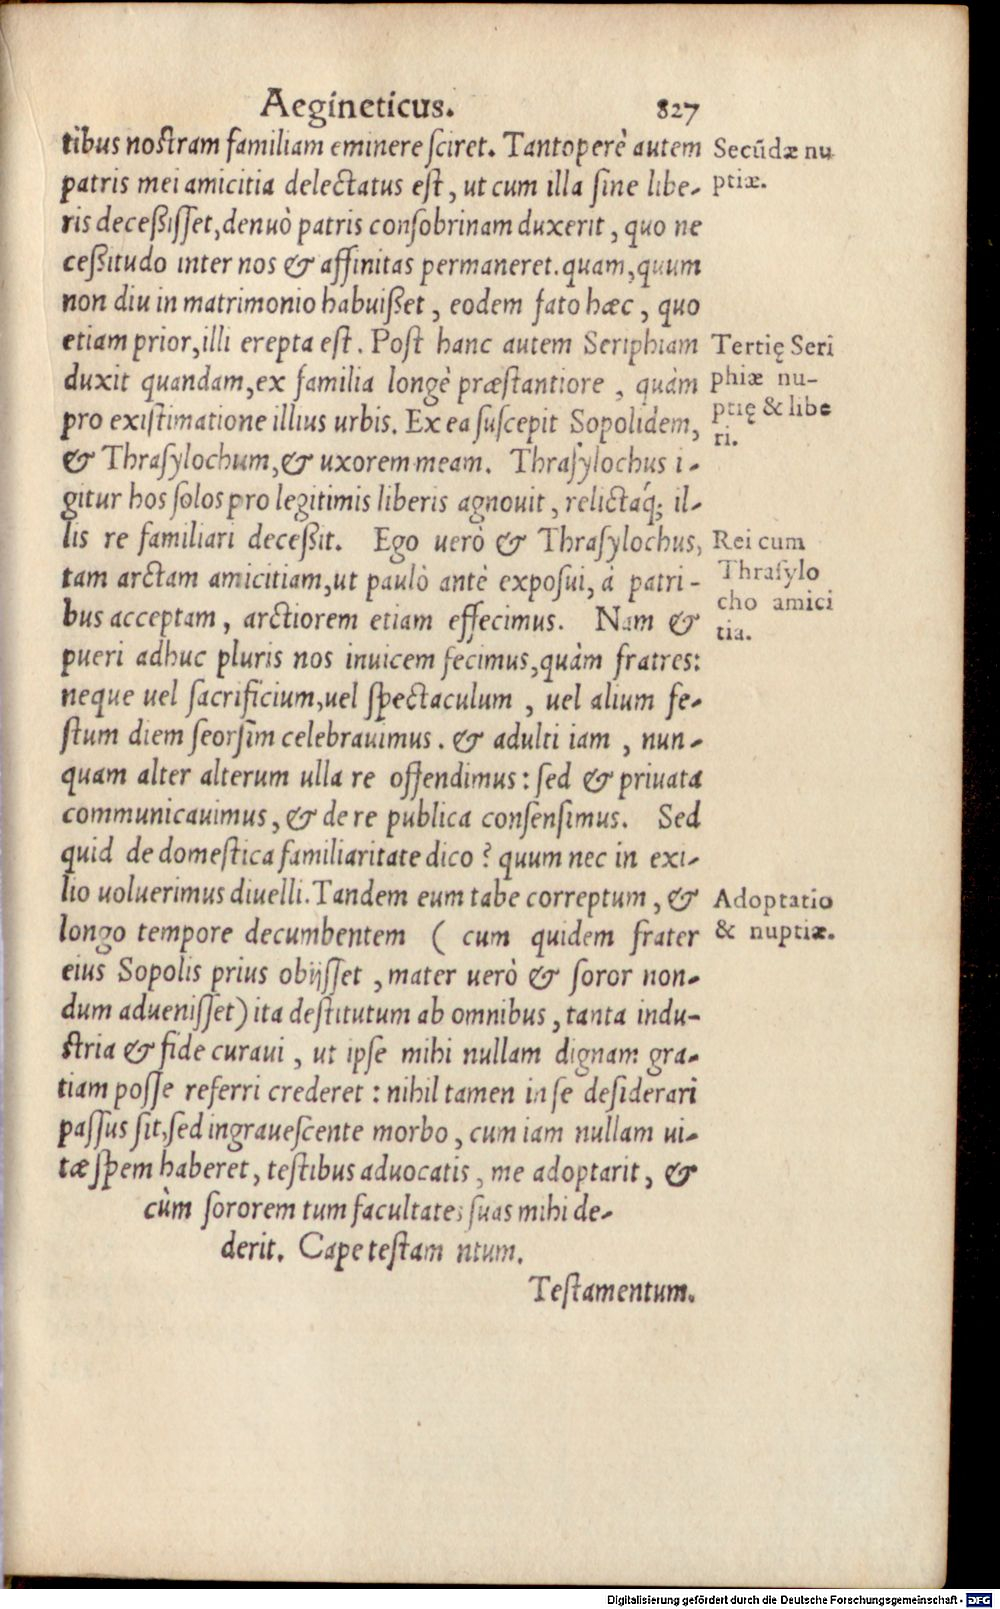 Aegineticus. 827
tibus nostram familiam eminere sciret. Tantoperè autem
patris mei amicitia delectatus est, ut cum illa sine libe-
ris deceßisset, denuò patris consobrinam duxerit, quo ne
ceßitudo inter nos & affinitas permaneret. quam, quum
non diu in matrimonio habuißet, eodem fato hæc, quo
etiam prior, illi erepta est. Post hanc autem Seriphiam
duxit quandam, ex familia longè præstantiore, quàm
pro existimatione illius urbis. Ex ea suscepit Sopolidem,
& Thrasylochum, & uxorem meam. Thrasylochus i-
gitur hos solos pro legitimis liberis agnouit, relictaq́; il-
lis re familiari deceßit. Ego uerò & Thrasylochus,
tam arctam amicitiam, ut paulò antè exposui, à patri-
bus acceptam, arctiorem etiam effecimus. Nam &
pueri adhuc pluris nos inuicem fecimus, quàm fratres:
neque uel sacrificium, uel spectaculum, uel alium fe-
stum diem seorsim celebrauimus. & adulti iam, nun-
quam alter alterum ulla re offendimus: sed & priuata
communicauimus, & de re publica consensimus. Sed
quid de domestica familiaritate dico? quum nec in exi-
lio uoluerimus diuelli. Tandem eum tabe correptum, &
longo tempore decumbentem ( cum quidem frater
eius Sopolis prius obijsset, mater uerò & soror non-
dum aduenisset) ita destitutum ab omnibus, tanta indu-
stria & fide curaui, ut ipse mihi nullam dignam gra-
tiam posse referri crederet: nihil tamen in se desiderari
passus sit, sed ingrauescente morbo, cum iam nullam ui-
tæ spem haberet, testibus aduocatis, me adoptarit, &
cùm sororem tum facultates suas mihi de-
derit. Cape testam ntum.
Testamentum.
Secūdæ nu
ptiæ.
Tertię Seri
phiæ nu-
ptię & libe
ri.
Rei cum
Thrasylo
cho amici
tia.
Adoptatio
& nuptiæ.
Digitalisierung gefördert durch die Deutsche Forschungsgemeinschaft - DFG